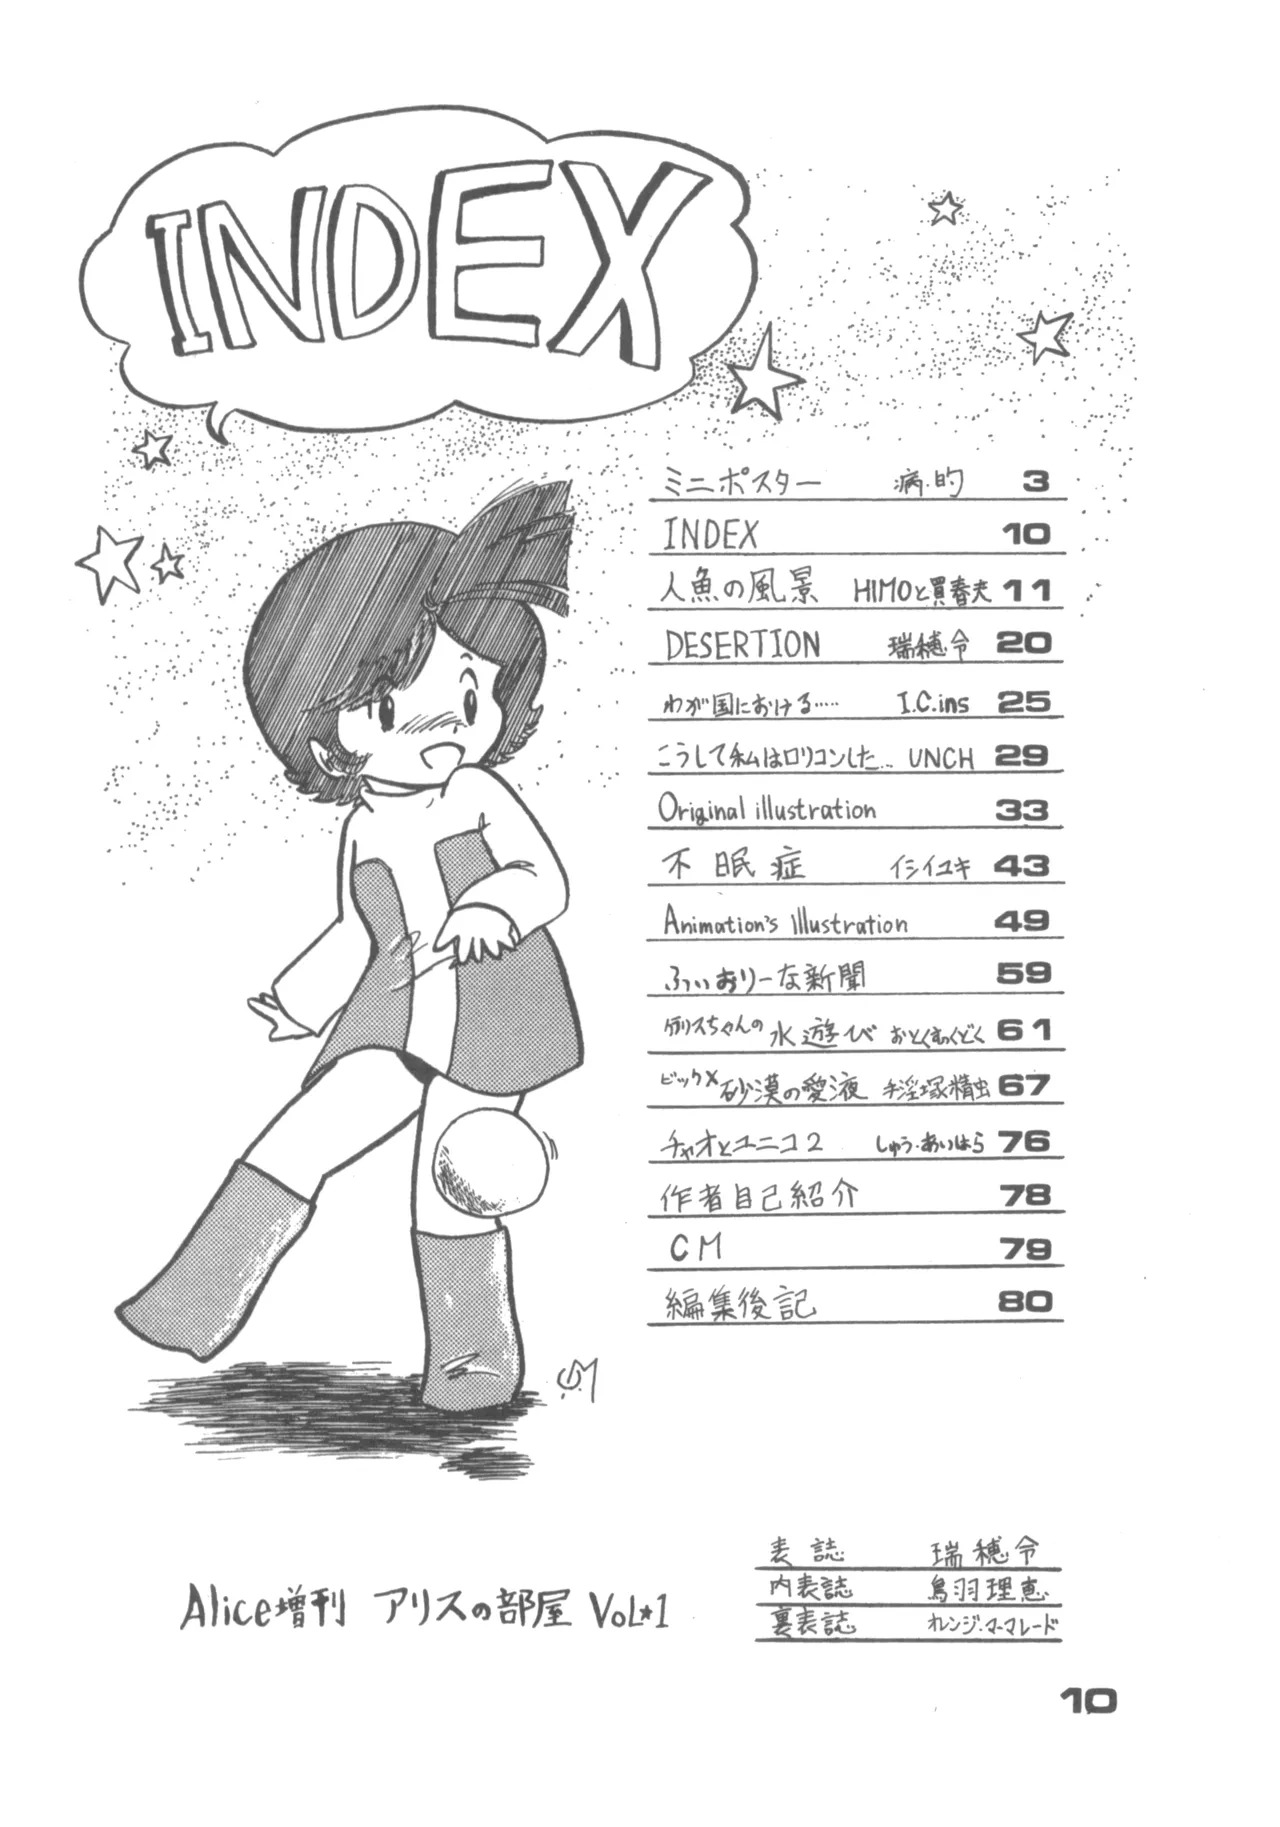 INDEX
ミニポスター 病的 3
INDEX 10
人魚の風景 HIMOと買春夫 11
DESERTION 瑞穂令 20
わが国における..... I.C.ins 25
こうして私はロリコンした... UNCH 29
Original illustration 33
不眠症 イシイユキ 43
Animation's Illustration 49
ふぃおりーな新聞 59
アリスちゃんの水遊び おとくむくどく 61
ビックX 砂漠の愛液 手淫塚精虫 67
チャオとユニコ2 しゅう・あいはら 76
作者自己紹介 78
CM 79
編集後記 80
表誌 瑞穂令
内表誌 鳥羽理恵
裏表誌 オレンジ・マーマレード
Alice増刊 アリスの部屋 VOL*1
10